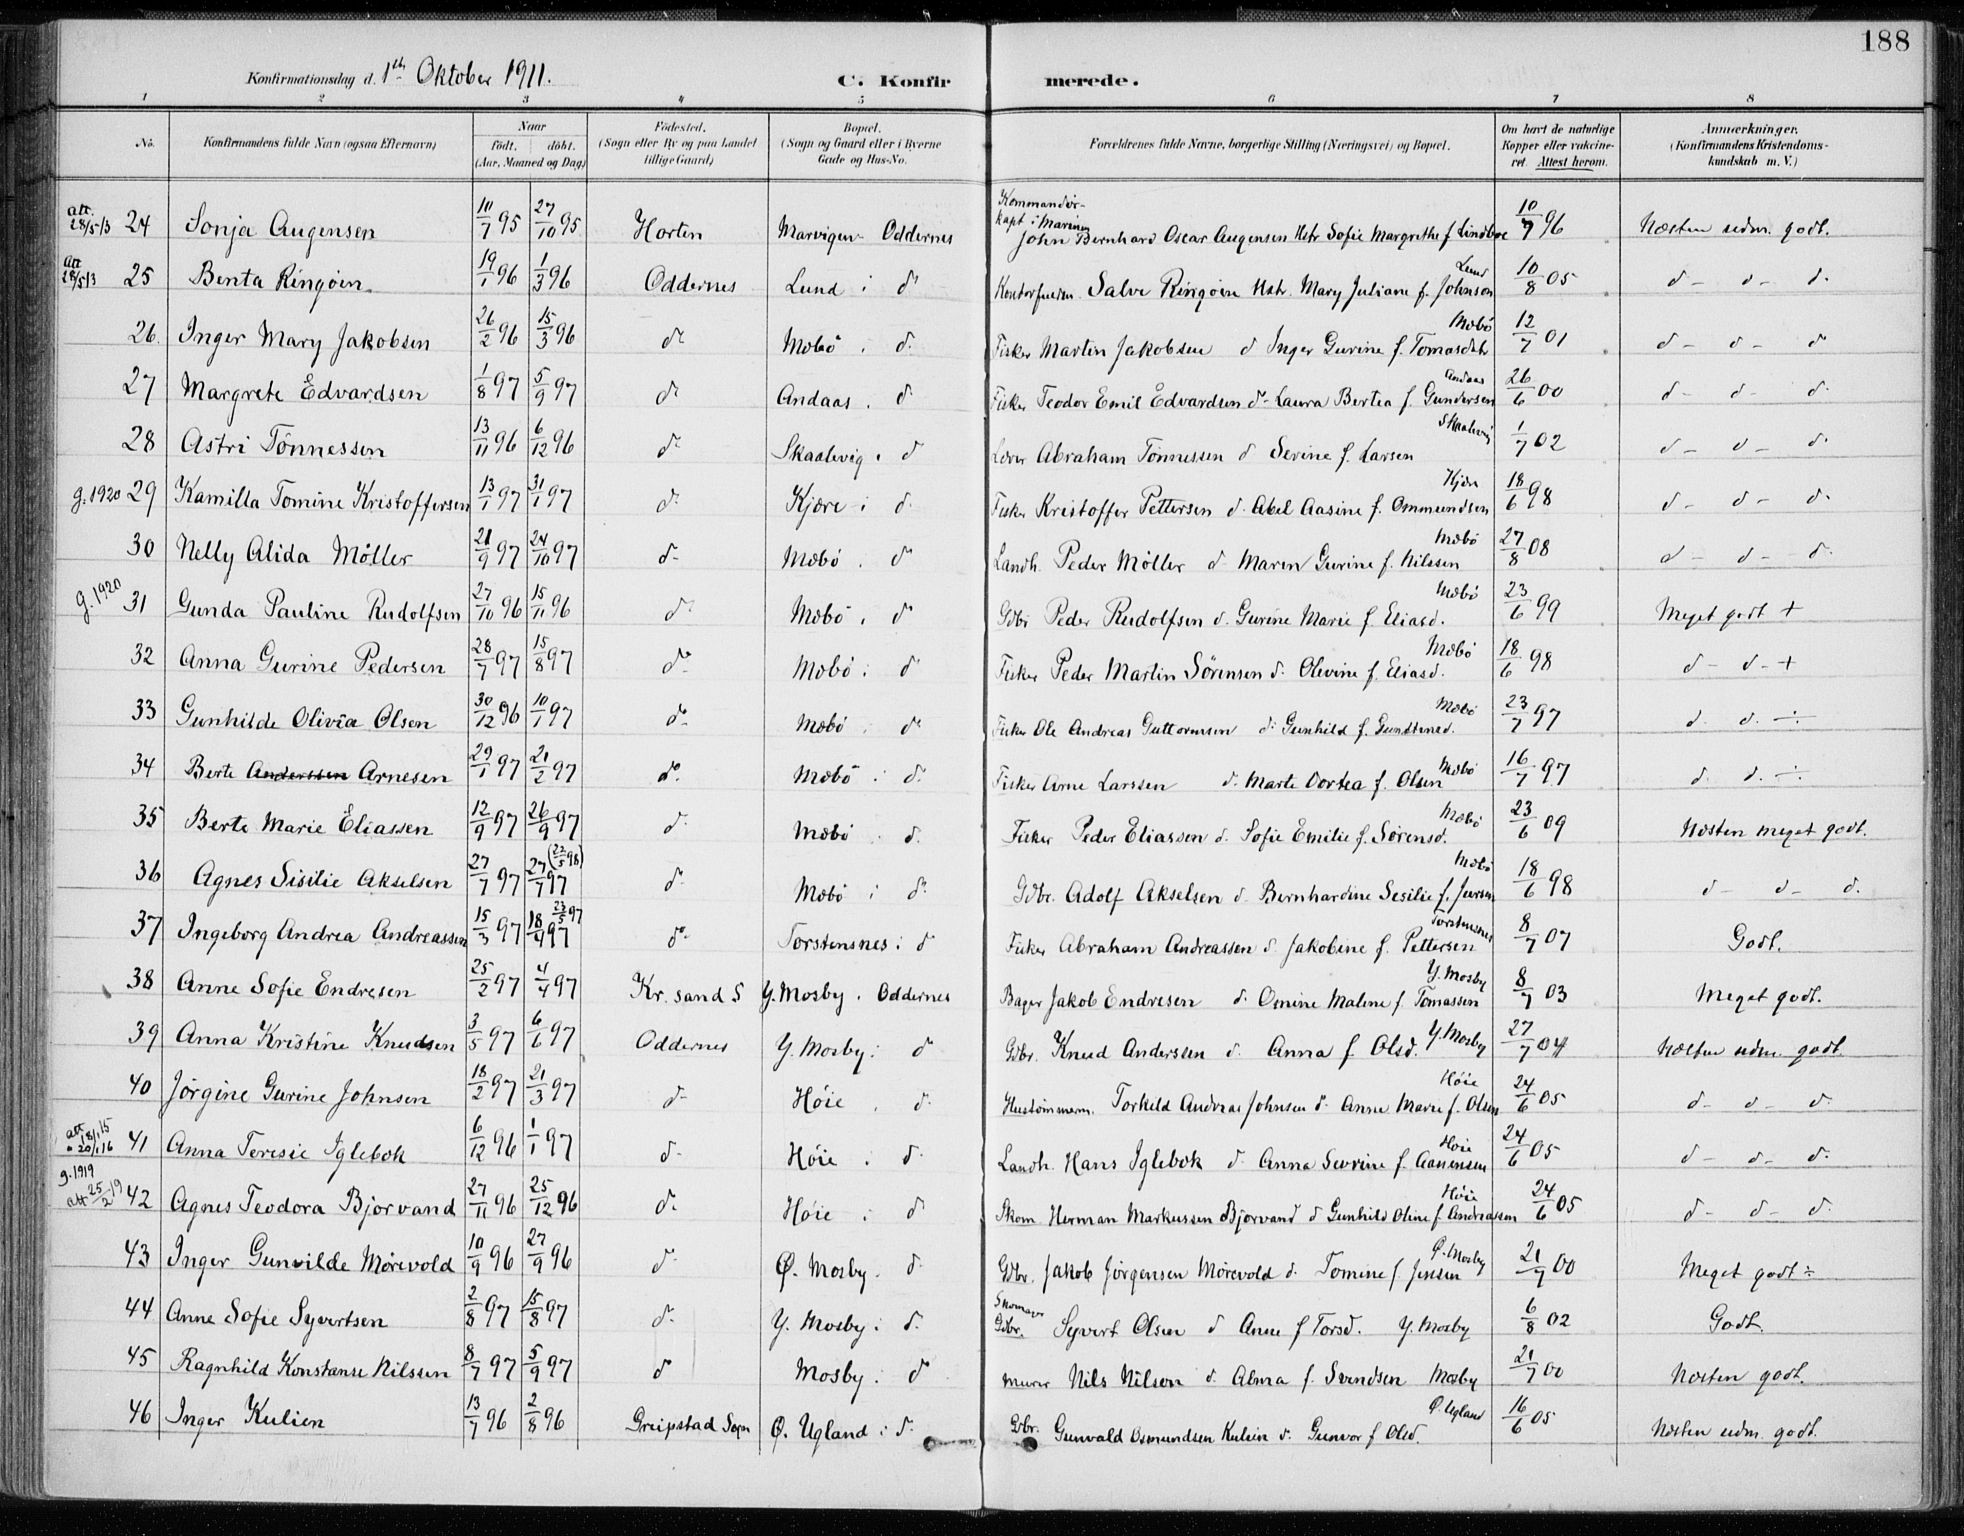 188
Konfirmationsdag d. 1th Oktober 1911.
C. Konfirmerede.
1 2 3 4 5 6 7 8
No.
Konfirmandens fulde Navn (ogsaa Efternavn)
Naar
födt. döbt.
(Aar, Maaned og Dag)
Födested.
(Sogn eller By og paa Landet
tillige Gaard)
Bopæl.
(Sogn og Gaard eller i Byerne
Gade og Hus-No.
Forældrenes fulde Navne, borgerlige Stilling (Næringsvei) og Bopæl.
Om havt de naturlige
Kopper eller vakcine-
ret. Attest herom.
Anmærkninger.
(Konfirmandens Kristendoms-
kundskab m. V.)
att. 28/5 13 24 Sonja Augensen 10/7 95 27/10 95 Horten Marvigen Oddernes Kommandör-kapt i Marinen John Bernhard Oscar Augensen Hstr Sofie Margrethe f. Lindboe 10/7 96 Næsten udm. godt.
att 28/5 13 25 Benta Ringöen 19/1 96 1/3 96 Oddernes Lund i d° Salve Ringöen Hstr. Mary Juliane f. Johnson Lund 10/8 05 d - d - d.
26. Inger Mary Jakobsen 26/2 96 15/3 96 d° Mæbö i d. Fisker Martin Jakobsen d Inger Gurine f. Tomasdtr Mæbö 12/7 01 d - d - d
27 Margrete Edvardsen 1/8 97 5/9 97 d° Andaas . d. Fisker Teodor Emil Edvardsen d- Laura Bertea f. Gundersen Andaas 26/6 00 d - d - d.
28 Astri Tönnessen 13/11 96 6/12 96 d° Skaalevig . d Abraham Tönnessen d Sevine f. Larsen Skaalevig 1/7 02 d - d - d.
g. 1920 29 Kamilla Tomine Kristoffersen 13/1 97 31/1 97 d. Kjære i d. Fisker Kristoffer Pettersen d. Abel Aasine f. Ommundsen Kjære 18/6 98 d - d - d.
30 Nelly Alida Möller 21/9 97 24/10 97 d- Mæbö . d° Landh. Peder Möller d Maren Gurine f. Nilssen Mæbö 27/8 08 d - d - d.
g. 1920 31 Gunda Pauline Rudolfsen 27/10 96 15/11 96 d. Mæbö . d° Gdbr Peder Rudolfsen d. Gurine Marie f. Eliasd. Mæbö 23/6 99 Meget godt +
32 Anna Gurine Pedersen 28/7 97 15/8 97 d° Mæbö i d Fisker Peder Martin Sörensen d. Olevine f. Eliasd. Mæbö 18/6 98 d - d - +
33 Gunhilde Olivia Olsen 30/12 96 10/1 97 d° Mæbö . d° Fisker Ole Andreas Guttormsen d. Gunhild f. Mæbö 23/7 97 d. d. ÷
34 Berte Anderssen Arnesen 29/1 97 21/2 97 d° Mæbö i d. Fisker Arne Larssen d. Marte Dortea f. Olsen Mæbö 16/7 97 d. d. ÷
35 Berte Marie Eliassen 12/9 97 26/9 97 d. Mæbö . d. Fisker Peder Eliassen d. Sofie Emilie f. Sörensd. Mæbö 23/6 09 Næsten meget godt.
36 Agnes Sisilie Akselsen 27/7 97 27/7 97 (22/5 98) d. Mæbö i d. Gdbr. Adolf Akselsen d. Bernhardine Sesilie f. Mæbö 18/6 98 d - d - d.
37 Ingeborg Andrea Andreassen 15/3 97 18/4 97 23/5 97 d° Torstensnes i d Fisker Abraham Andreassen d. Jakobine f. Pettersen Torstensnes 8/7 07 Godt.
38 Anne Sofie Endresen 25/2 97 4/4 97 Kr. sand S Y. Mosby . Oddernes Bager Jakob Endresen d. Omine Malene f. Tomassen Y. Mosby 8/7 03 Meget godt.
39 Anna Kristine Knudsen 3/5 97 6/6 97 Oddernes Y. Mosby i d Gdbr. Knud Anderssen d. Anna f. Olsd. Y. Mosby 27/7 04 Næsten udm. godt.
40 Jörgine Gurine Johnsen 18/2 97 21/3 97 d- Höie . d. Hustömmerm. Torkild Andreas Johnsen d. Anne Marie f. Olsen Höie 24/6 05 d - d - d.
att 18/1 15 " 20/1 16 41 Anna Teresie Iglebæk 6/12 96 1/1 97 d- Höie . d. Landh. Hans Iglebæk d. Anna Severine f. Aanensen Höie 24/6 05 d - d - d.
g. 1919 att 25/2 19 42 Agnes Teodora Bjorvand 27/11 96 25/12 96 d. Höie i d Skom. Herman Markussen Bjorvand d Gunhild Oline f. Andreassen Höie 24/6 05 d - d - d.
43 Inger Gunvilde Mörevold 10/9 96 27/9 96 d. Ö. Mosby . d. Gdbr. Jakob Jörgensen Mörevold d. Tomine f. Jensen Ö. Mosby 21/7 00 Meget godt ÷
44 Anne Sofie Syvertsen 2/8 97 15/8 97 d. Y. Mosby i d. Skomager Gdbr. Syvert Olsen d Anne f Torsd. Y. Mosby 6/8 02 Godt.
45 Ragnhild Konstanse Nilssen 8/7 97 5/9 97 d Mosby . d Murer Nils Nilsen d. Alma f. Svendsen Mosby 21/7 00 Næsten godt.
46 Inger Kulien 13/7 96 2/8 96 Greipstad Sogn Ö. Ugland i d. Gdbr. Gunvald Osmundsen Kulien d. Gunvor f Olsd. Ö. Ugland 16/6 05 Næsten udm. godt.